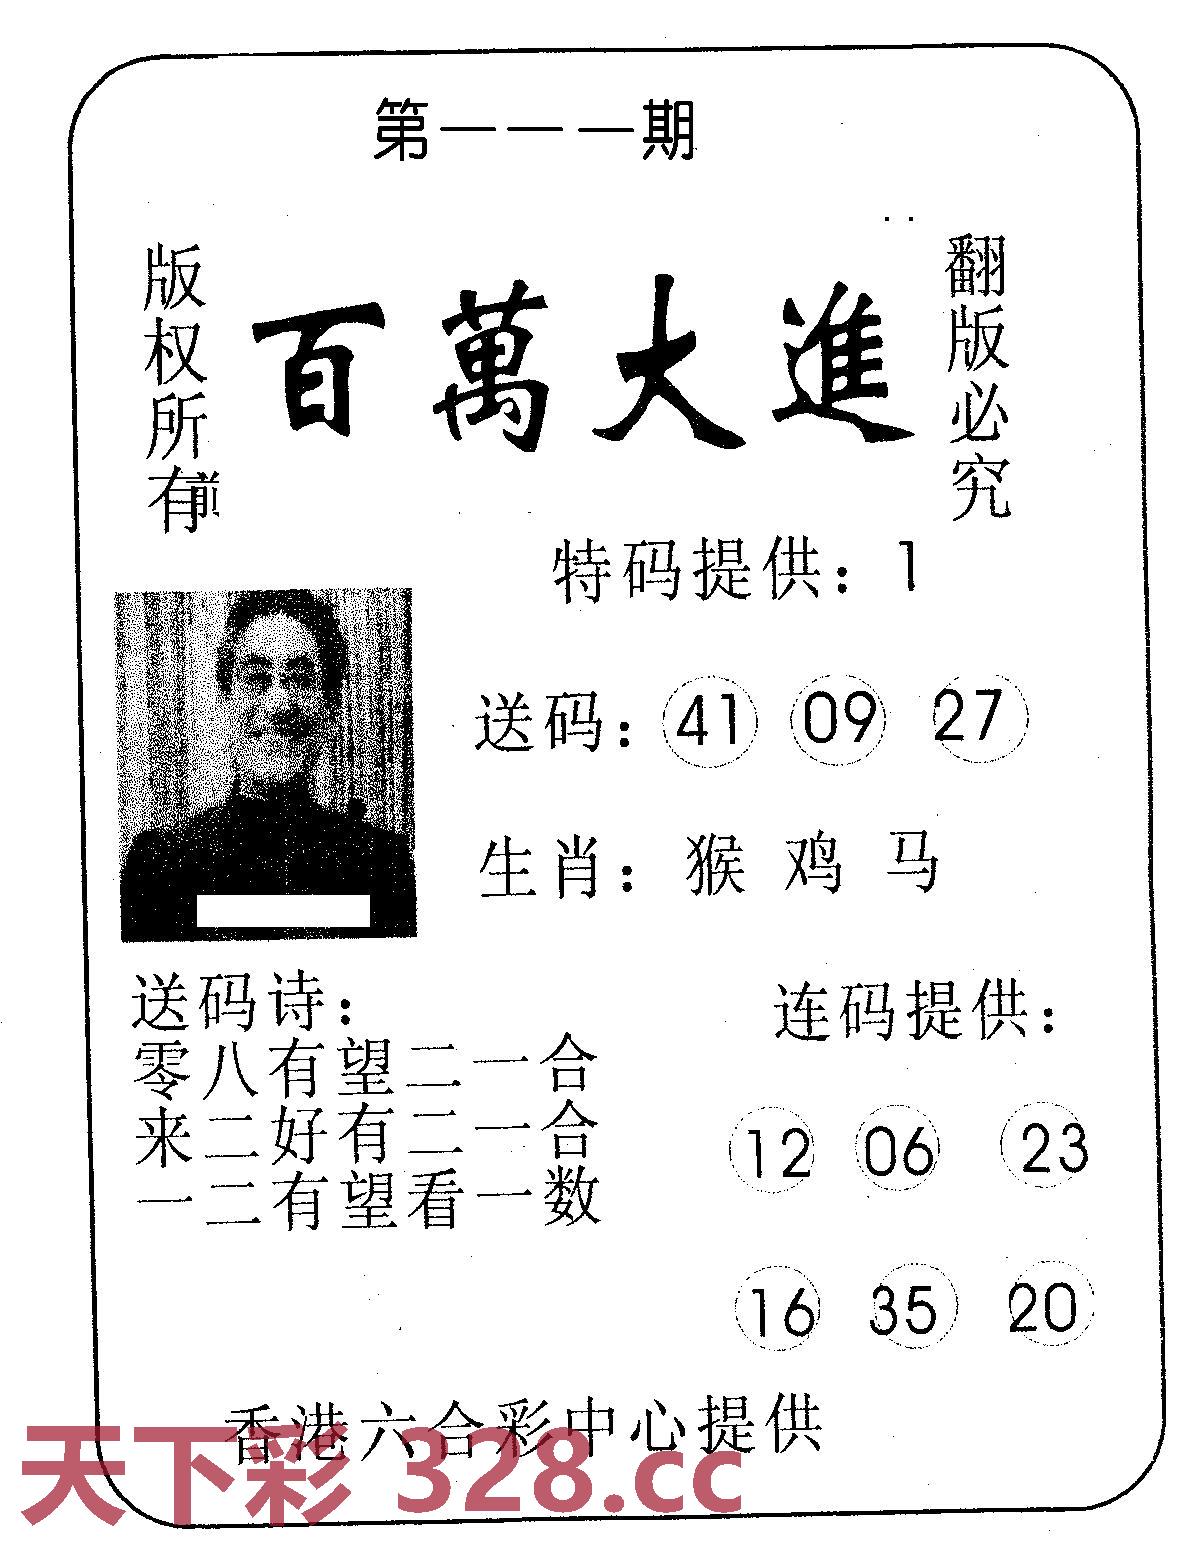 第一一一期
版权所有
百萬大進
翻版必究
特码提供：1
送码：41 09 27
生肖：猴 鸡 马
送码诗：
零八有望二一合
来二好有二一合
一二有望看一数
连码提供：
12 06 23
16 35 20
香港六合彩中心提供
天下彩 328.cc